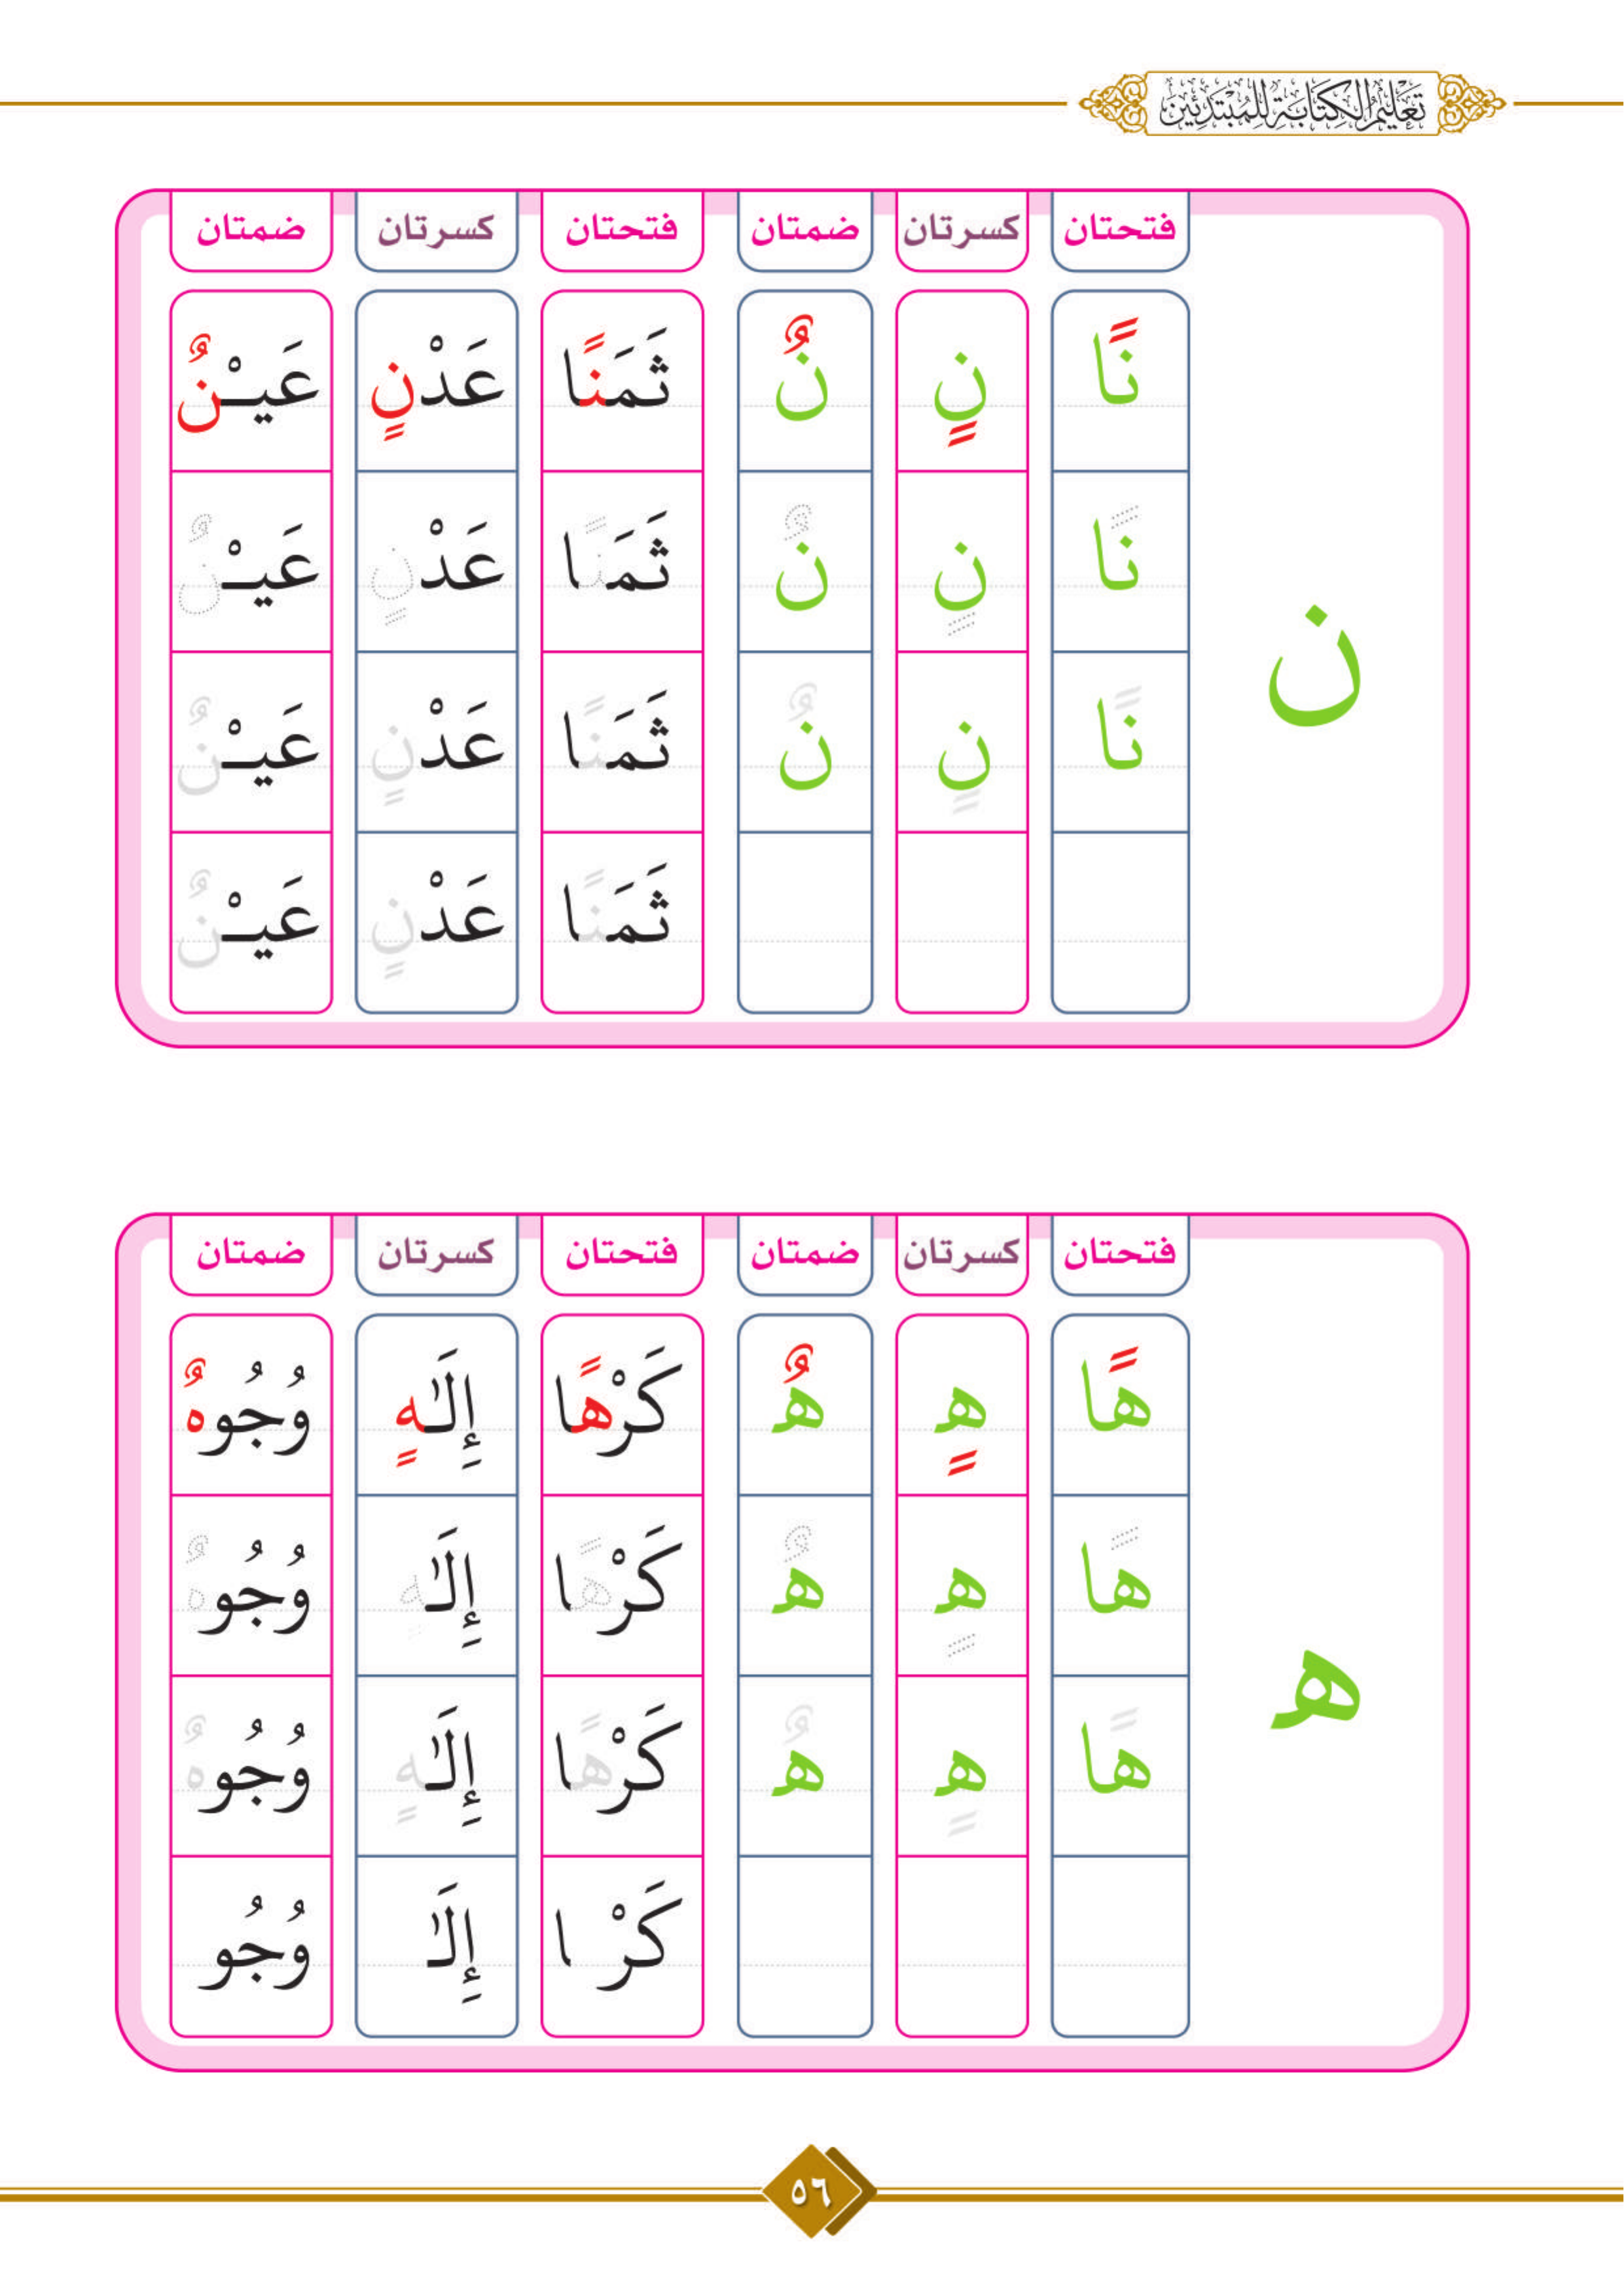 تَعْلِيمُ الْكِتَابَةِ لِلْمُبْتَدِئِينَ
فتحتان كسرتان ضمتان فتحتان كسرتان ضمتان
نًا نٍ نٌ ثَمَنًا عَدْنٍ عَيْنٌ
نًا نٍ نٌ ثَمَنًا عَدْنٍ عَيْنٌ
ن
نًا نٍ نٌ ثَمَنًا عَدْنٍ عَيْنٌ
ثَمَنًا عَدْنٍ عَيْنٌ
فتحتان كسرتان ضمتان فتحتان كسرتان ضمتان
هًا هٍ هٌ كَرْهًا إِلَٰهٍ وُجُوهٌ
هًا هٍ هٌ كَرْهًا إِلَٰهٍ وُجُوهٌ
ه
هًا هٍ هٌ كَرْهًا إِلَٰهٍ وُجُوهٌ
كَرْ ا إِلَٰ وُجُو
٥٦